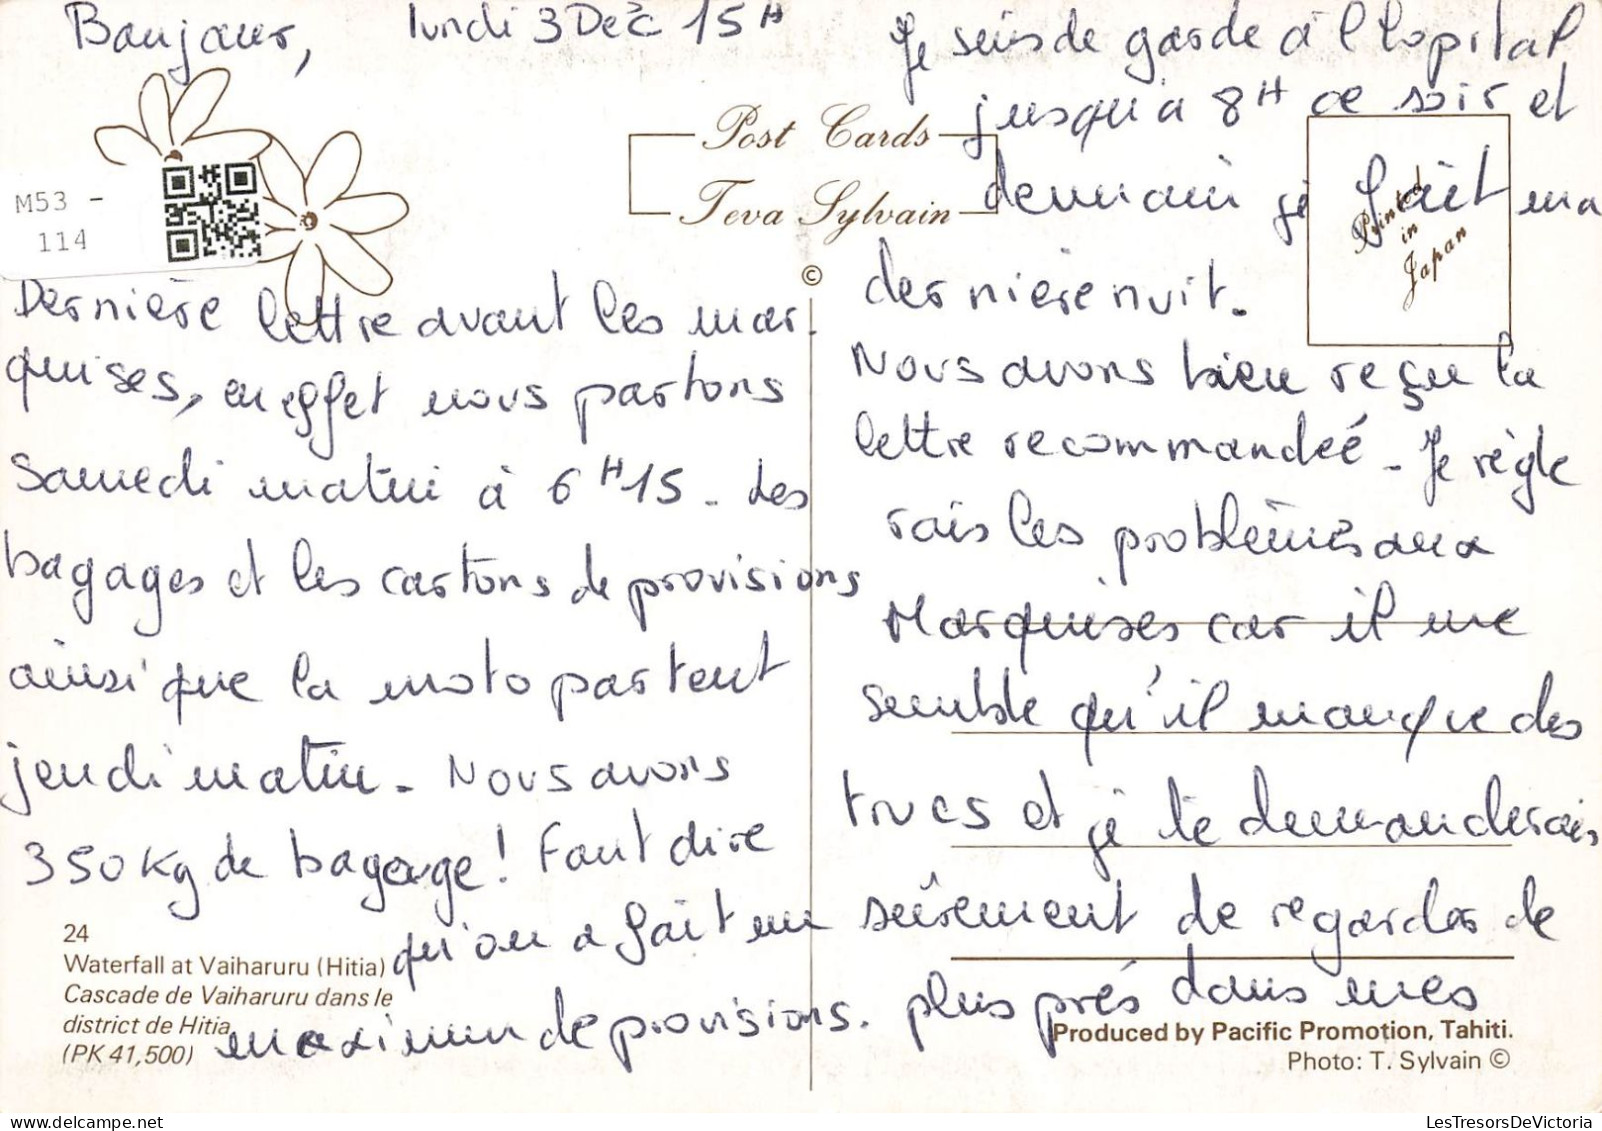 Bonjour, lundi 3 Déc 15H
M53 -
114
Dernière lettre avant les mar-
quises, en effet nous partons
samedi matin à 6H15 - Les
bagages et les cartons de provisions
ainsi que la moto partent
jeudi matin - Nous avons
350 kg de bagage! Faut dire
qu'on a fait un
maximum de provisions.
24
Waterfall at Vaiharuru (Hitia)
Cascade de Vaiharuru dans le
district de Hitia
(PK 41,500)
Post Cards
Teva Sylvain
©
Printed
in
Japan
Je suis de garde à l'hopital
jusqu'a 8H ce soir et
demain je fait ma
dernière nuit.
Nous avons bien reçu la
lettre recommandeé - Je règle
rais les problèmes aux
Marquises car il me
semble qu'il manque des
trucs et je te demanderais
sûrement de regarder de
plus près dans mes
Produced by Pacific Promotion, Tahiti.
Photo: T. Sylvain ©
LesTresorsDeVictoria